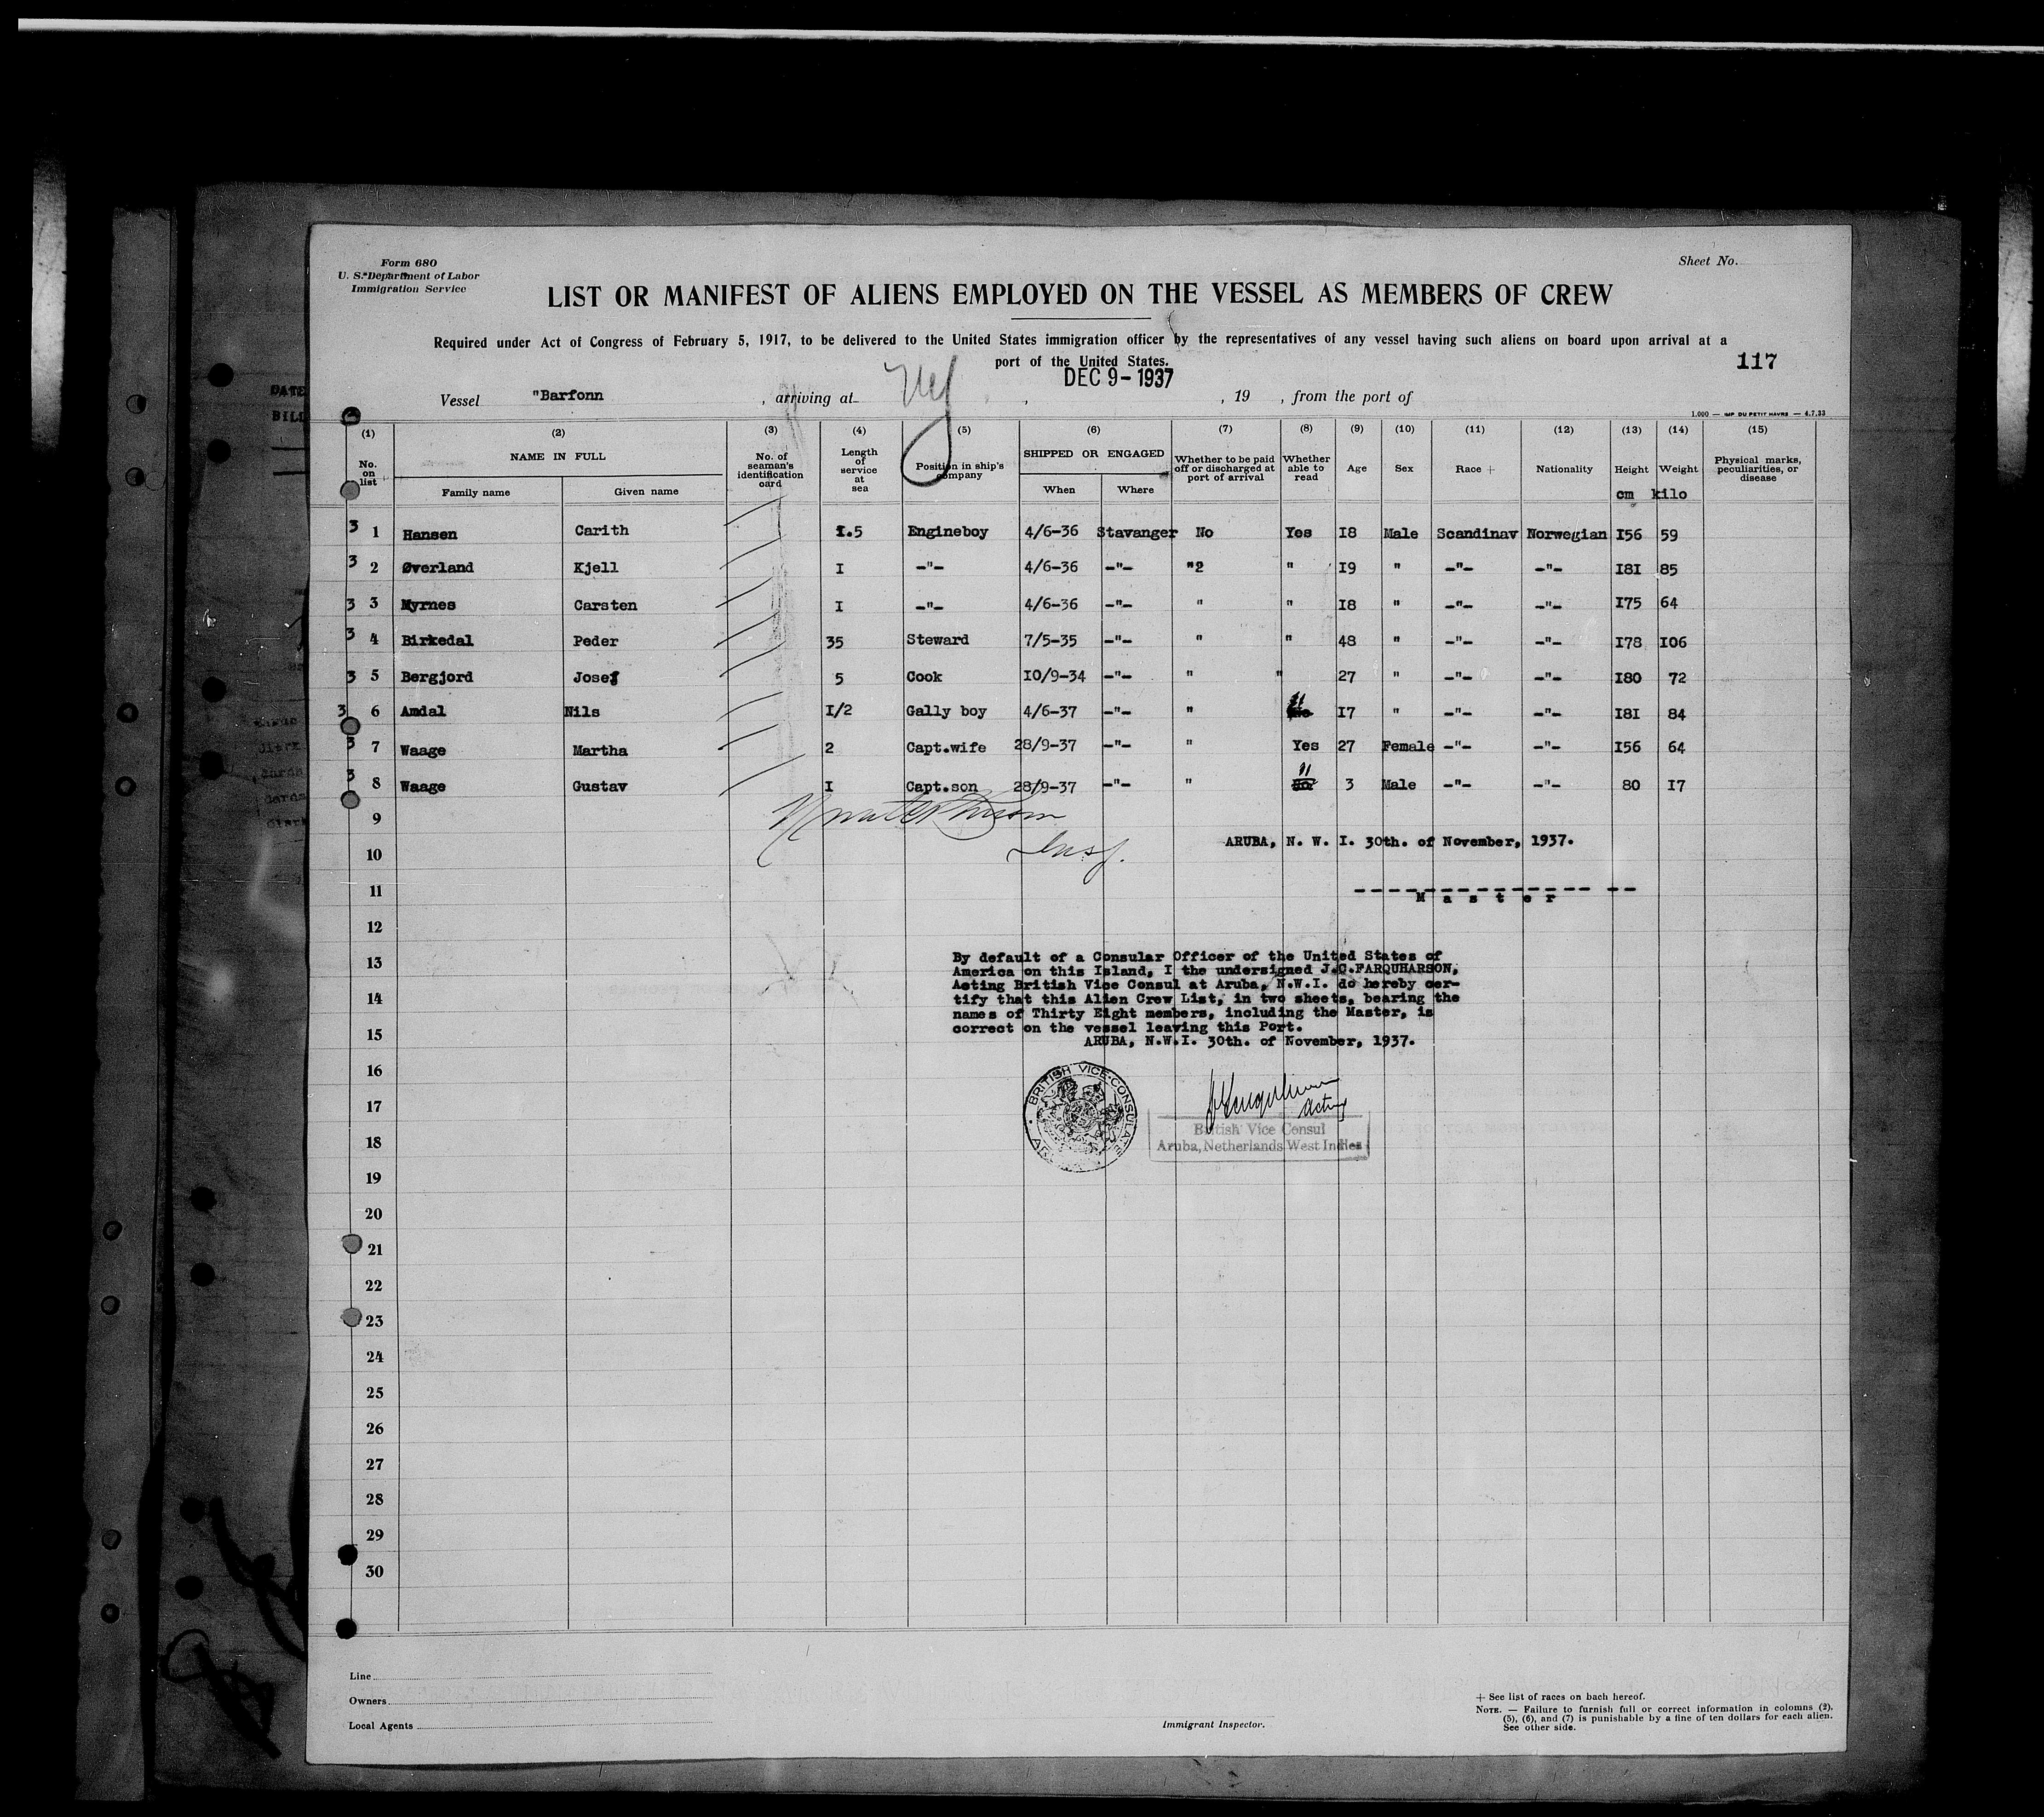 Form 680
U. S. Department of Labor
Immigration Service
Sheet No.
LIST OR MANIFEST OF ALIENS EMPLOYED ON THE VESSEL AS MEMBERS OF CREW
Required under Act of Congress of February 5, 1917, to be delivered to the United States immigration officer by the representatives of any vessel having such aliens on board upon arrival at a
port of the United States.
117
DEC 9- 1937
Vessel "Barfonn , arriving at , , 19 , from the port of
1.000 — IMP DU PETIT HAVRE — 4.7.33
(1) (2) (3) (4) (5) (6) (7) (8) (9) (10) (11) (12) (13) (14) (15)
No. on list NAME IN FULL Family name Given name No. of seaman's identification card Length of service at sea Position in ship's company SHIPPED OR ENGAGED When Where Whether to be paid off or discharged at port of arrival Whether able to read Age Sex Race + Nationality Height Weight Physical marks, peculiarities, or disease
cm kilo
3 1 Hansen Carith I.5 Engineboy 4/6-36 Stavanger No Yes I8 Male Scandinav Norwegian I56 59
3 2 Øverland Kjell I -"- 4/6-36 -"- "2 " I9 " -"- -"- I8I 85
3 3 Myrnes Carsten I -"- 4/6-36 -"- " " I8 " -"- -"- I75 64
3 4 Birkedal Peder 35 Steward 7/5-35 -"- " " 48 " -"- -"- I78 I06
3 5 Bergjord Josef 5 Cook I0/9-34 -"- " " 27 " -"- -"- I80 72
3 6 Amdal Nils I/2 Gally boy 4/6-37 -"- " " I7 " -"- -"- I8I 84
3 7 Waage Martha 2 Capt.wife 28/9-37 -"- " Yes 27 Female -"- -"- I56 64
3 8 Waage Gustav I Capt.son 28/9-37 -"- " " 3 Male -"- -"- 80 I7
9
Insp.
ARUBA, N. W. I. 30th. of November, 1937.
10
11
Master
12
13
14
15
By default of a Consular Officer of the United States of
America on this Island, I the undersigned J.C.FARQUHARSON,
Acting British Vice Consul at Aruba, N.W.I. do hereby cer-
tify that this Alien Crew List, in two sheets, bearing the
names of Thirty Eight members, including the Master, is
correct on the vessel leaving this Port.
ARUBA, N.W.I. 30th. of November, 1937.
16
BRITISH VICE-CONSULATE
17
Acting
18
British Vice Consul
Aruba, Netherlands West Indies
19
20
21
22
23
24
25
26
27
28
29
30
Line
Owners
Local Agents
Immigrant Inspector.
+ See list of races on bach hereof.
NOTE. — Failure to furnish full or correct information in colomns (2),
(5), (6), and (7) is punishable by a fine of ten dollars for each alien.
See other side.